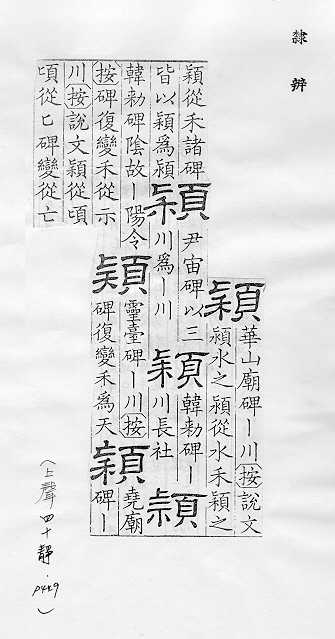 隸辨
穎
華山廟碑ー川按說文
潁水之潁從水禾穎之
穎從禾諸碑
皆以穎為潁
穎
尹宙碑以三
川為ー川
穎
韓勑碑ー
川長社
穎
韓勑碑陰故ー陽令
按碑復變禾從示
穎
靈臺碑ー川按
碑復變禾為天
穎
堯廟
碑ー
川按說文穎從頃
頃從匕碑變從亡
（上聲四十靜．P449）